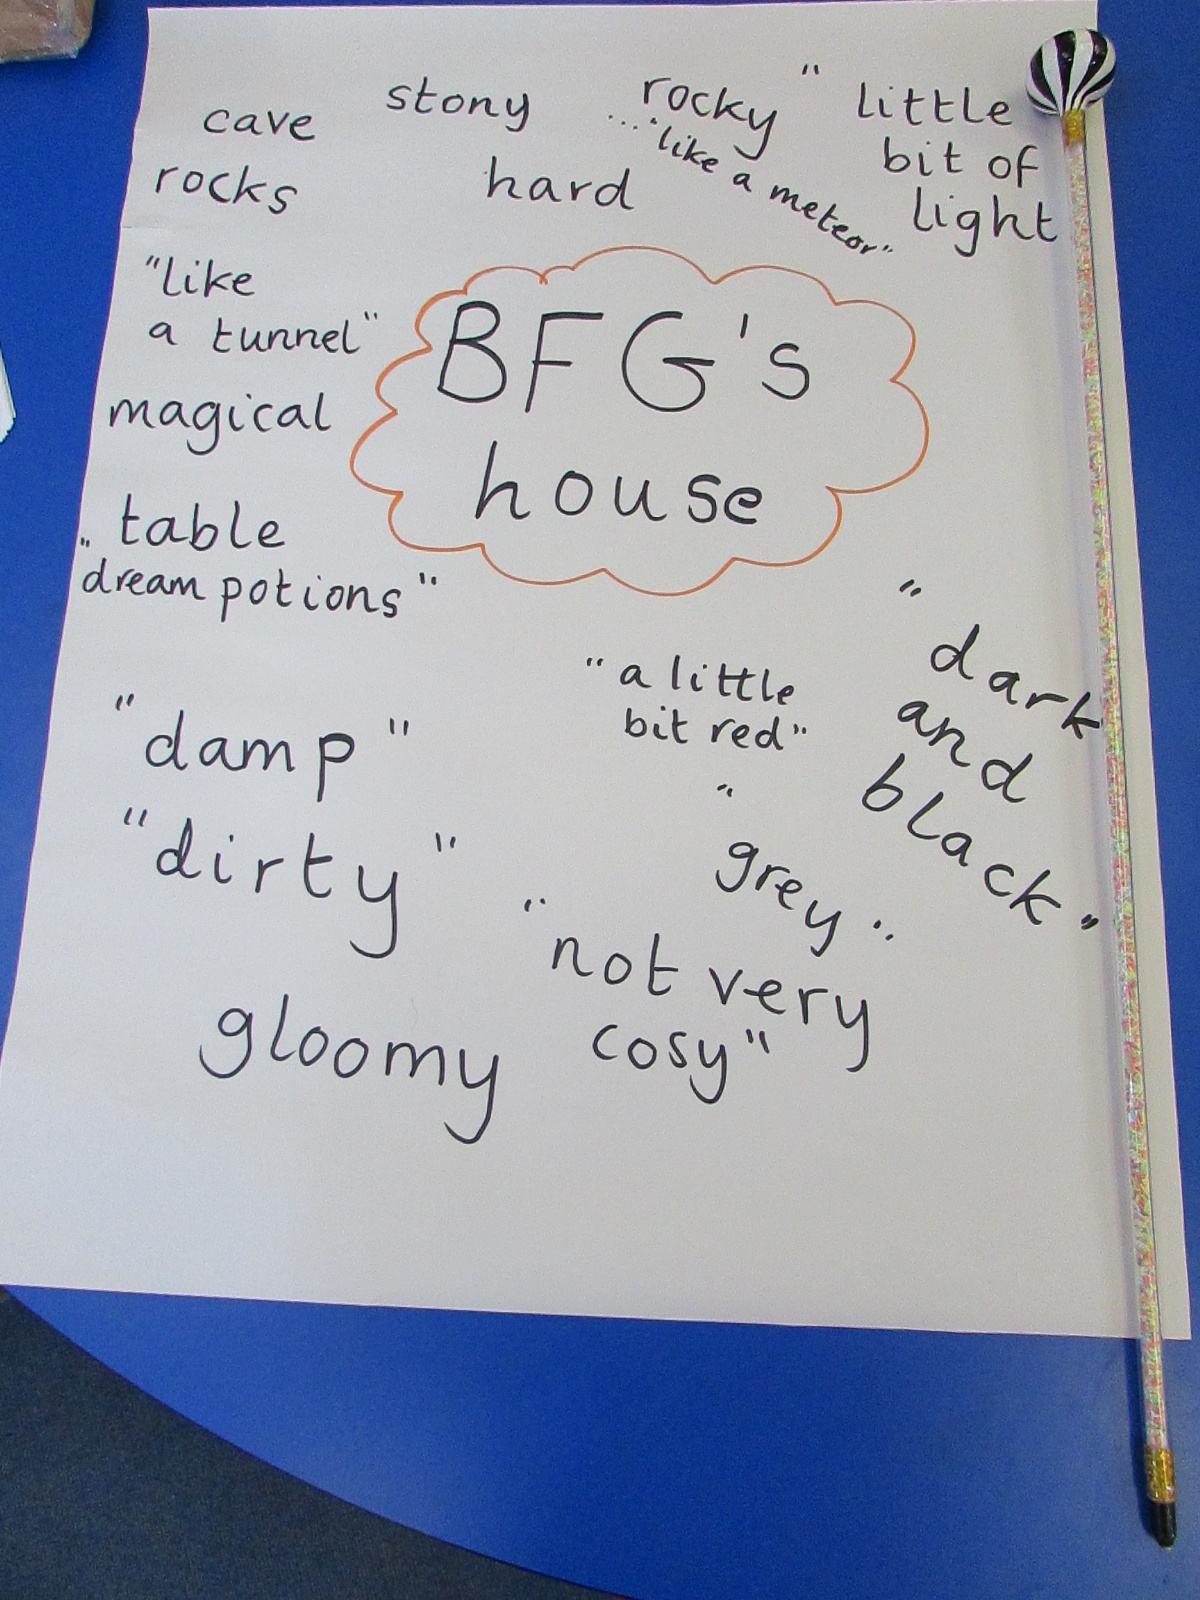 cave
rocks
stony
hard
rocky
..."like a meteor"
"little
bit of
light
"like
a tunnel"
magical
"table
dream potions"
BFG's
house
"damp"
"dirty"
gloomy
"a little
bit red"
"grey"
"not very
cosy"
"dark
and
black"